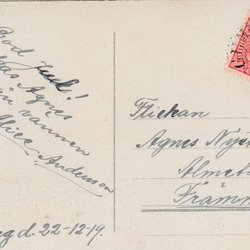 God Jul!
Agnes
vännen
Alice Anderson
d. 22-12-19.
Flickan
Agnes Ny
Almeta
Främm